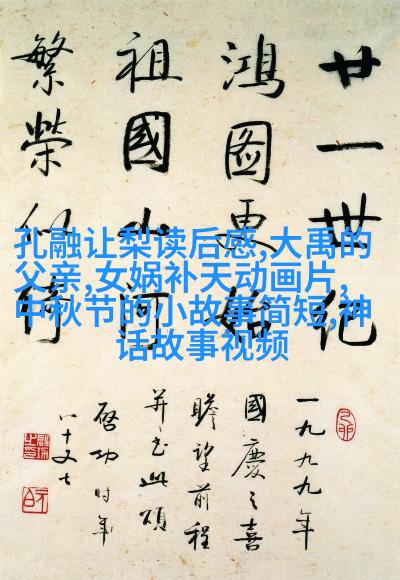 廿一世纪
鸿图更始
祖國山河
繁榮似绮
孔融让梨读后感,大禹的
父亲,女娲补天动画片,
中秋节的小故事简短,神
话故事视频
一九九九年
國慶之喜
瞻望前程
并书此頌
啓功时年
八十又七